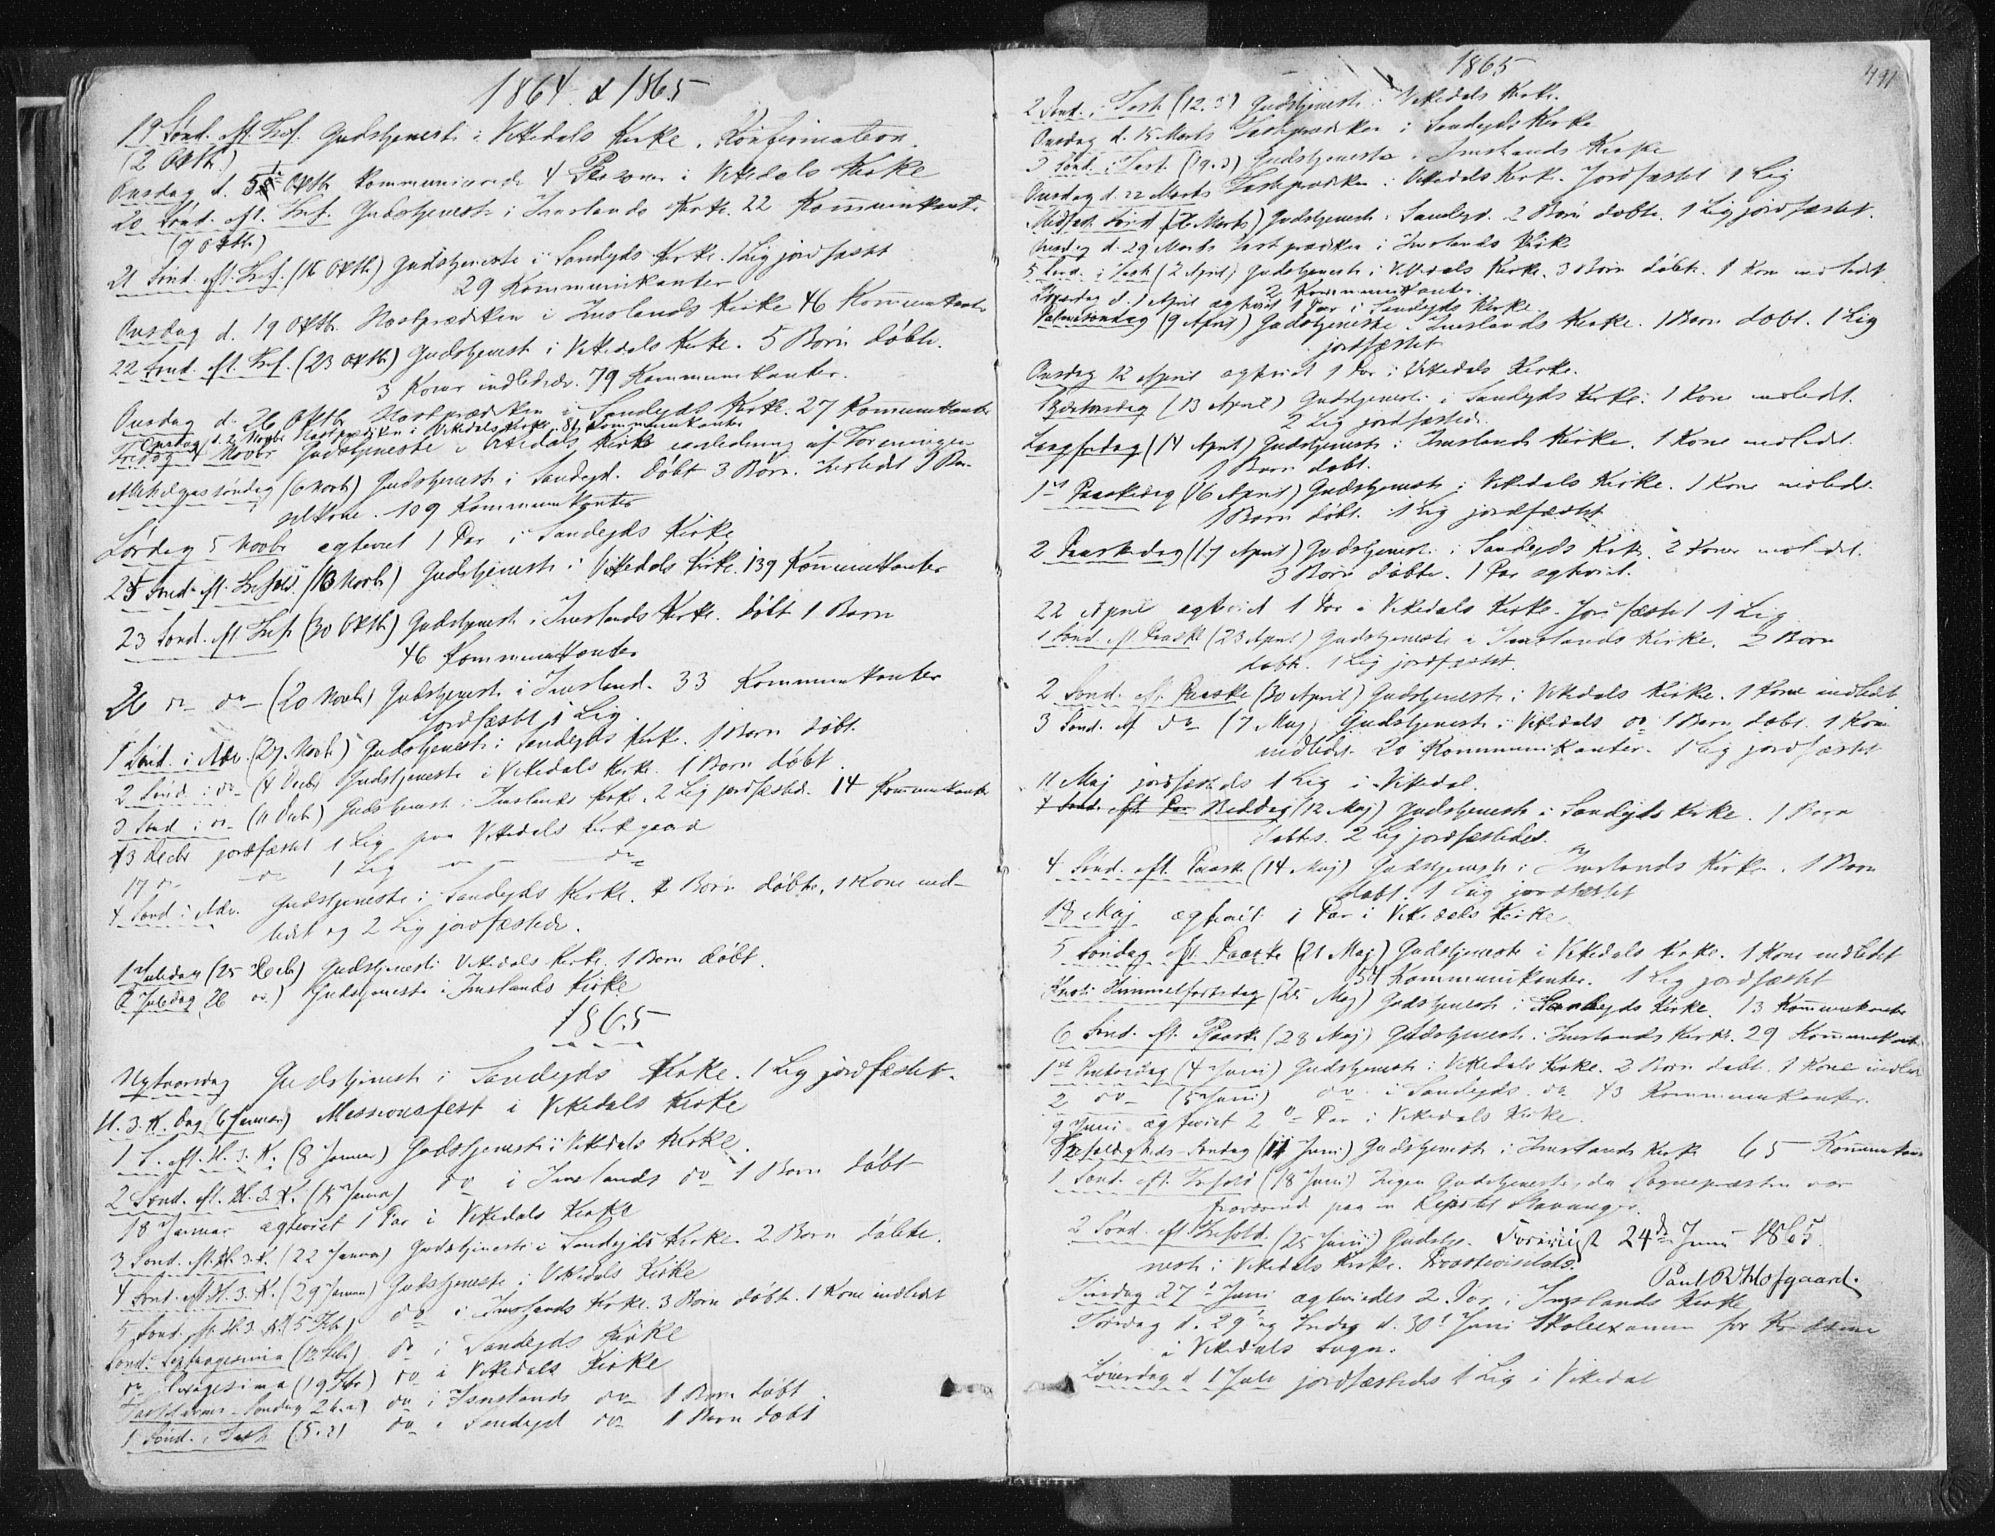 1864 & 1865
19 Sønd. eft. Tref. Gudstjeneste i Vikedals Kirke. Konfirmation.
(2 Oktb.)
Onsdag d. 5te Oktb. kommunicerede 4 Personer i Vikedals Kirke
20 Sønd. eft. Tref. Gudstjeneste i Imslands Kirke. 22 Kommunikanter
(9 Oktb.)
21 Sønd. eft. Tref. (16 Oktb) Gudstjeneste i Sandejds Kirke. 1 Lig jordfæstet
29 Kommunikanter
Onsdag d. 19 Oktb. Høstprædiken i Imslands Kirke 46 Kommunikanter
22 Sønd. eft. Tref. (23 Oktb) Gudstjenest i Vikedals Kirke. 5 Børn døbte.
3 Koner indledede. 79 Kommunikanter.
Onsdag d. 26 Oktbr Høstprædiken i Sandejds Kirke. 27 Kommunikanter
Onsdag d. 2 Novbr Høstprædiken i Vikedals Kirke. 81 Kommunikanter
Fredag 4 Novbr Gudstjeneste i Vikedals Kirke i anledning af Foreningen
Allehelgenssøndag (6 Novb) Gudstjenest i Sandejd. Døbt 3 Børn. Indledet 3 Bar-
selkone. 109 Kommunikanter
Lørdag 5 Novbr egteviet 1 Par i Sandejds Kirke
25 Sønd. eft. Trefold. (13 Novb) Gudstjenest i Vikedals Kirke. 139 Kommunikanter
23 Sønd. eft. Tref. (30 Oktb) Gudstjenest i Imslands Kirke. Døbt 1 Barn
46 Kommunikanter
26 do do (20 Novb) Gudstjenest i Imsland. 33 Kommunikanter
Jordfæstet 1 Lig.
1 Sønd. i Adv. (27. Novb) Gudstjenest i Sandejds Kirke. 1 Barn døbt.
2 Sønd. i do (4 Decbr) Gudstjeneste i Vikedals Kirke. 1 Barn døbt.
3 Sønd. i do (11 Decb) Gudstjenest i Imslands Kirke. 2 Lig jordfæstede. 14 Kommunikanter
13 Decbr jordfæstet 1 Lig paa Vikedals Kirkegaard
17 do do 1 Lig do do
4 Sønd. i Adv. Gudstjeneste i Sandejds Kirke. 2 Børn døbte, 1 Kone ind-
ledet og 2 Lig jordfæstede.
1 Juledag (25 Decb) Gudstjeneste Vikedals Kirke. 1 Barn døbt.
2 Juledag (26 do) Gudstjeneste i Imslands Kirke
1865
Nytaarsdag Gudstjenest i Sandejds Kirke. 1 Lig jordfæstet.
H. 3. K. Dag (6 Januar) Missionsfest i Vikedals Kirke
1 S. eft. H. 3. K. (8 Januar) Gudstjeneste i Vikedals Kirke.
2 Sønd. eft. H. 3. K. (15 Januar) do i Imslands do 1 Barn døbt
18 Januar egteviet 1 Par i Vikedals Kirke
3 Sønd. eft. H. 3. K. (22 Januar) Gudstjeneste i Sandejds Kirke. 2 Børn døbte.
4 Sønd. eft. H. 3. K. (29 Januar) Gudstjeneste i Vikedals Kirke
5 Sønd. eft. H. 3. K. (5 Febr) do i Imslands Kirke. 3 Børn døbt. 1 Kone indledet
Sønd. Septuagesima (12 Febr) do i Sandejds Kirke
do Sexagesima (19 Febr) do i Vikedals Kirke
Fastelavns-Søndag 26.2) do i Imslands do 1 Barn døbt.
1 Sønd. i Fast. (5.3) do i Sandejd do 1 Barn døbt
1865
491
2 Sønd. i Fast (12.3) Gudstjenest i Vikedals Kirke.
Onsdag d. 15 Marts Fastepræken i Sandejds Kirke
3 Sønd. i Fast. (19.3) Gudstjeneste i Imslands Kirke
Onsdag d. 22 Marts Fasteprædiken i Vikedals Kirke. Jordfæstet 1 Lig
Midfast. Sønd (26 Marts) Gudstjenest i Sandejd. 2 Børn døbte. 1 Lig jordfæstet.
Onsdag d. 29 Marts Fasteprædiken i Imslands Kirke
5 Sønd. i Fast (2 April) Gudstjeneste i Vikedals Kirke. 3 Børn døbte. 1 Kone indledet
2 Kommunikanter.
Lørdag d. April egteviet 1 Par i Sandejds Kirke.
Palmesøndag (9 April) Gudstjeneste i Imslands Kirke. 1 Barn døbt. 1 Lig
jordfæstet
Onsdag 12 April egteviet 1 Par i Vikedals Kirke.
Skjærtorsdag (13 April) Gudstjenest i Sandejds Kirke. 1 Kone indledet.
2 Lig jordfæstede.
Langfredag (14 April) Gudstjenest i Imslands Kirke. 1 Kone indledet.
1 Barn døbt.
1st Paaskedag (16 April) Gudstjenest i Vikedals Kirke. 1 Kone indledet.
1 Barn døbt. 1 Lig jordfæstet
2 Paaskedag (17 April) Gudstjenest i Sandejds Kirke. 2 Koner indledet.
3 Børn døbte. 1 Par egteviet.
22 April egteviet 1 Par i Vikedals Kirke. Jordfæstet 1 Lig
1 Sønd. eft. Paaske (23 April) Gudstjeneste i Imslands Kirke. 2 Børn
døbte. 1 Lig jordfæstet.
2 Sønd. eft. Paaske (30 April) Gudstjenest i Vikedals Kirke. 1 Kone indledet
3 Sønd. ef. do (7 Maj) Gudstjenest i Vikedals do 1 Barn døbt. 1 Kone
indledet. 20 Kommunikanter. 1 Lig jordfæstet
11 Maj jordfæstedes 1 Lig i Vikedal.
4 Sønd. eft. Paa Beddag (12 Maj) Gudstjenest i Sandejds Kirke. 1 Barn
døbtes. 2 Lig jordfæstedes.
4 Sønd. eft. Paask (14 Maj) Gudstjenest i Imslands Kirke. 1 Barn
døbt. 1 Lig jordfæstet
18 Maj egteviet 1 Par i Vikedals Kirke.
5 Søndag eft. Paaske (21 Maj) Gudstjeneste i Vikedals Kirke. 1 Kone indledet
54 Kommunikanter. 1 Lig jordfæstet
Kristi Himmelfartsdag (25 Maj) Gudstjenest i Sandejds Kirke. 13 Kommunikanter
6 Sønd. eft. Paask. (28 Maj) Gudstjenest i Imslands Kirke. 29 Kommunikanter
1st Pintsedag (4 Juni) Gudstjenest i Vikedals Kirke. 2 Børn døbt. 1 Kone indled
2 do (5 Juni) do i Sandejds do 43 Kommunikanter.
9 Juni egteviet 2 Par i Vikedals Kirke.
Trefoldigheds-Søndag (11 Juni) Gudstjenest i Imslands Kirke 65 Kommunikanter
1 Sønd. eft. Trefold (18 Juni) Ingen Gudstjeneste, da Sognepræsten var
fraværende paa en Rejse til Stavanger.
2 Sønd. eft. Trefold. (25 Juni) Gudstje-
neste i Vikedals Kirke. Provstevisitats.
Foreviist 24de Juni 1865.
Paul R Hofgaard.
Tirsdag 27de Juni egteviedes 2 Par i Imslands Kirke
Torsdag d. 29 og Fredag d. 30te Juni Skoleexamen for Kredsene
i Vikedals Sogn.
Løverdag d 1 Juli jordfæstedes 1 Lig i Vikedal